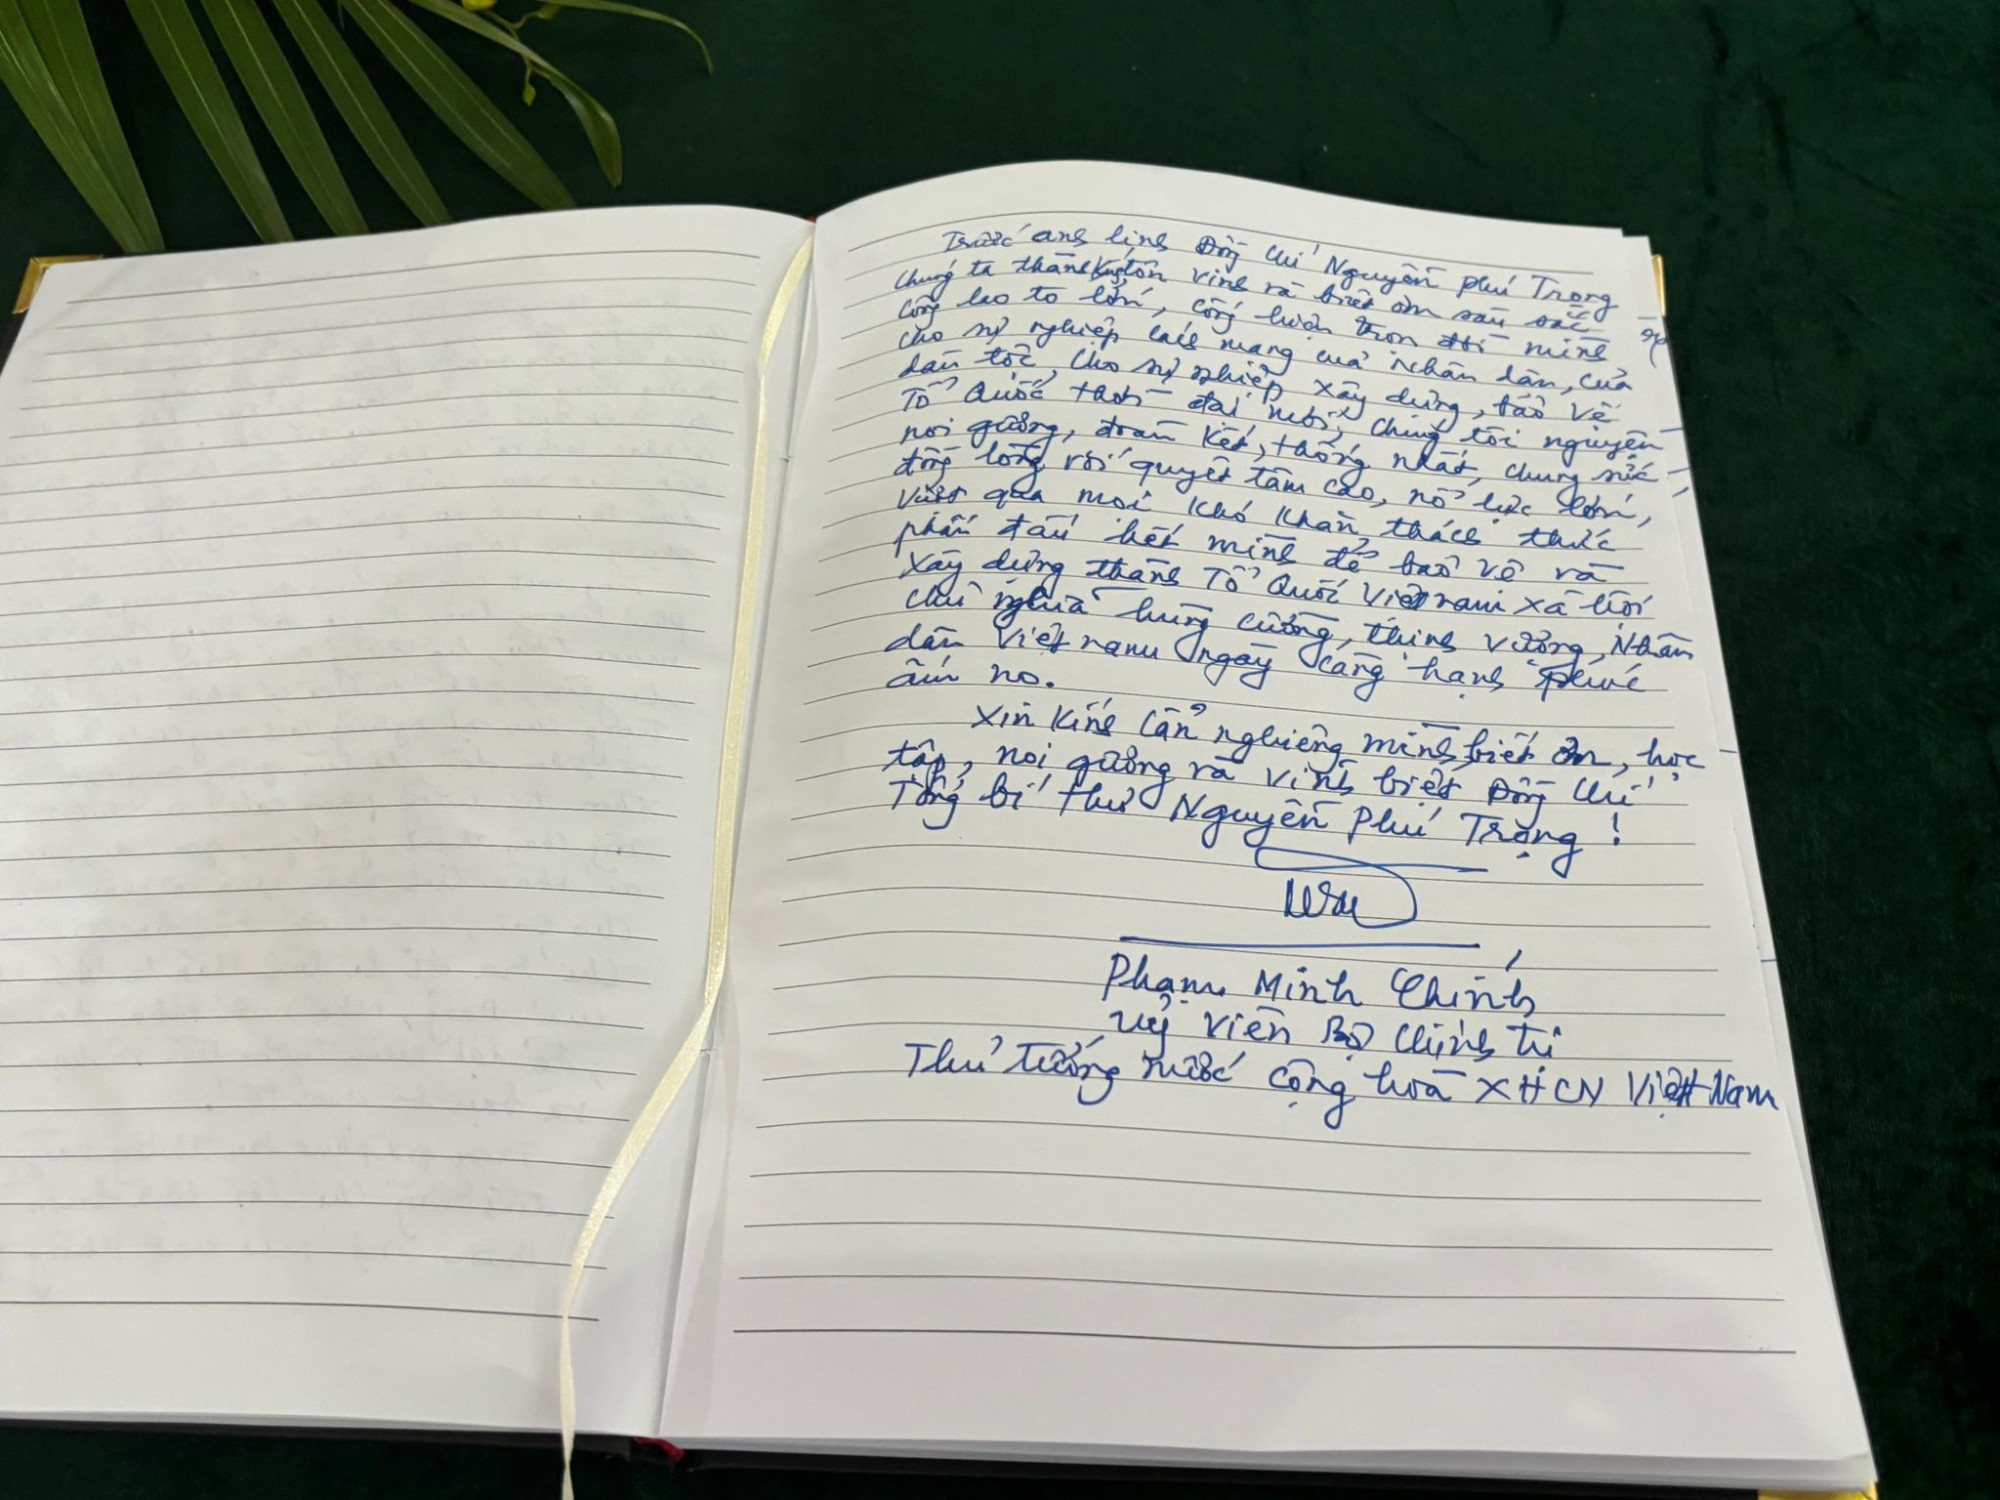 Trước anh linh Đồng chí Nguyễn Phú Trọng
chúng ta thành kính tôn vinh và biết ơn sâu sắc
công lao to lớn, cống hiến trọn đời mình
cho sự nghiệp cách mạng của nhân dân, của
dân tộc, cho sự nghiệp xây dựng, bảo vệ
Tổ Quốc thời đại mới; chúng tôi nguyện
noi gương, đoàn kết, thống nhất, chung sức
đồng lòng với quyết tâm cao, nỗ lực lớn,
vượt qua mọi khó khăn, thách thức
phấn đấu hết mình để bảo vệ và
xây dựng thành Tổ Quốc Việt nam xã hội
chủ nghĩa hùng cường, thịnh vượng, Nhân
dân Việt nam ngày càng hạnh phúc
ấm no.
Xin kính cẩn nghiêng mình, biết ơn, học
tập, noi gương và vĩnh biệt Đồng chí
Tổng bí thư Nguyễn Phú Trọng!
Phạm Minh Chính
Uỷ viên Bộ Chính trị
Thủ tướng nước cộng hoà XHCN Việt Nam